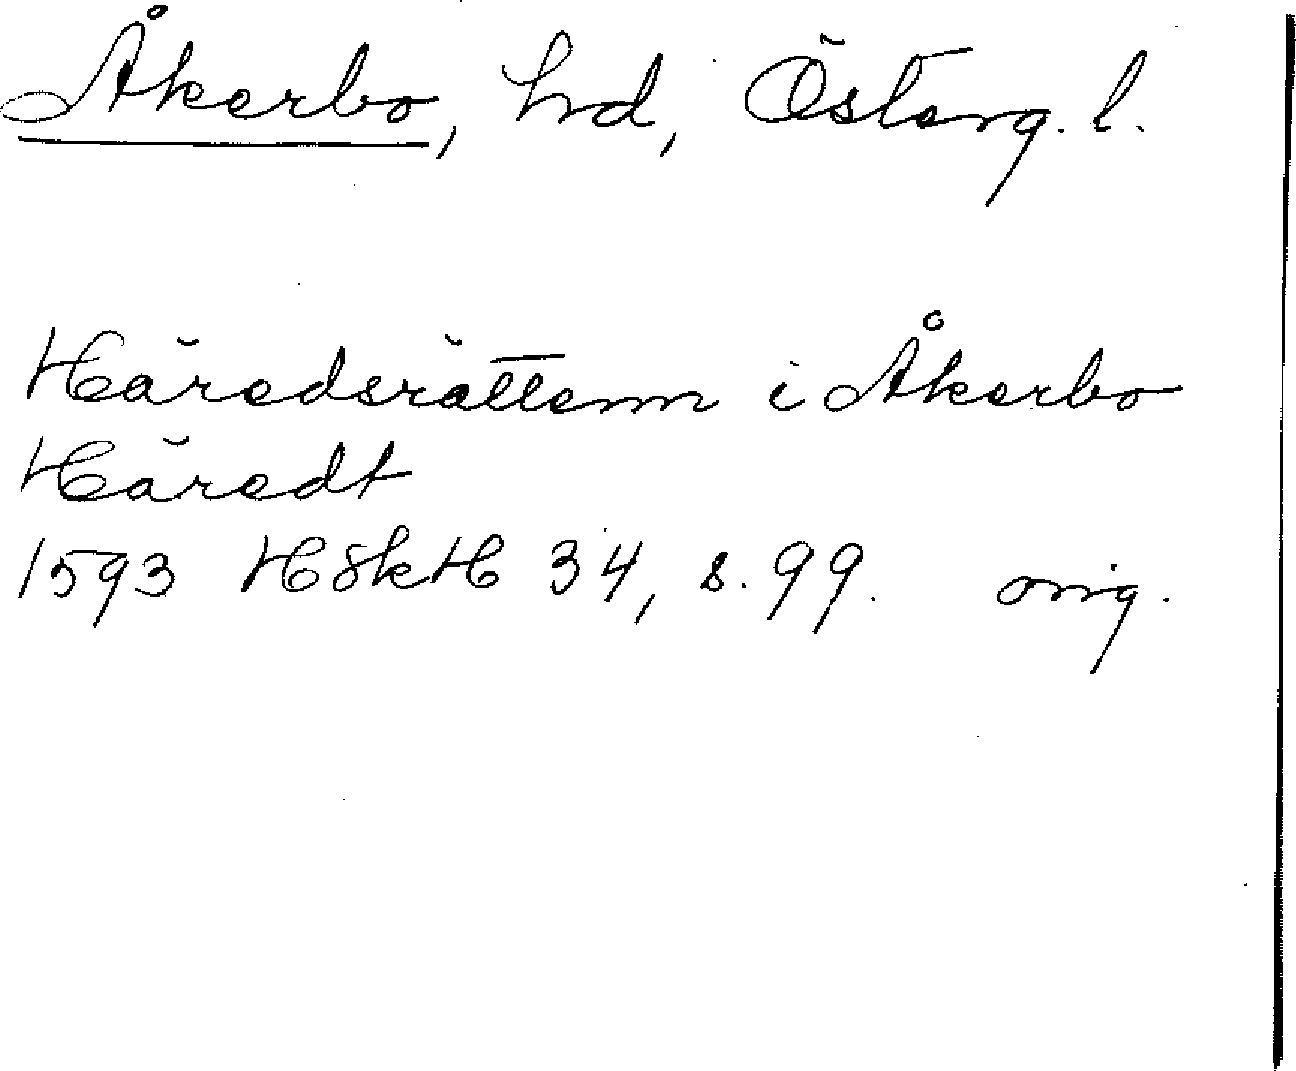 Åkerbo, hd, Österg. l.
Häredsrättenn i Åkerbo
Häredt
1593 HSkH 34, s. 99. orig.